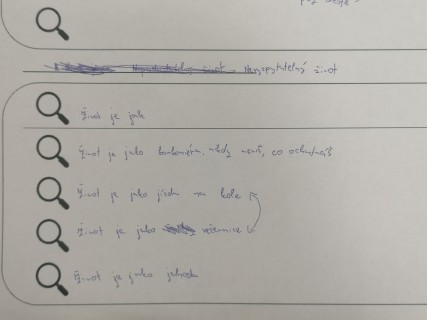 život
Život je jak
Život je jako bonboniéra, nikdy nevíš, co ochutnáš
Život je jako jízda na kole
Život je jako večernice
Život je jako jahoda